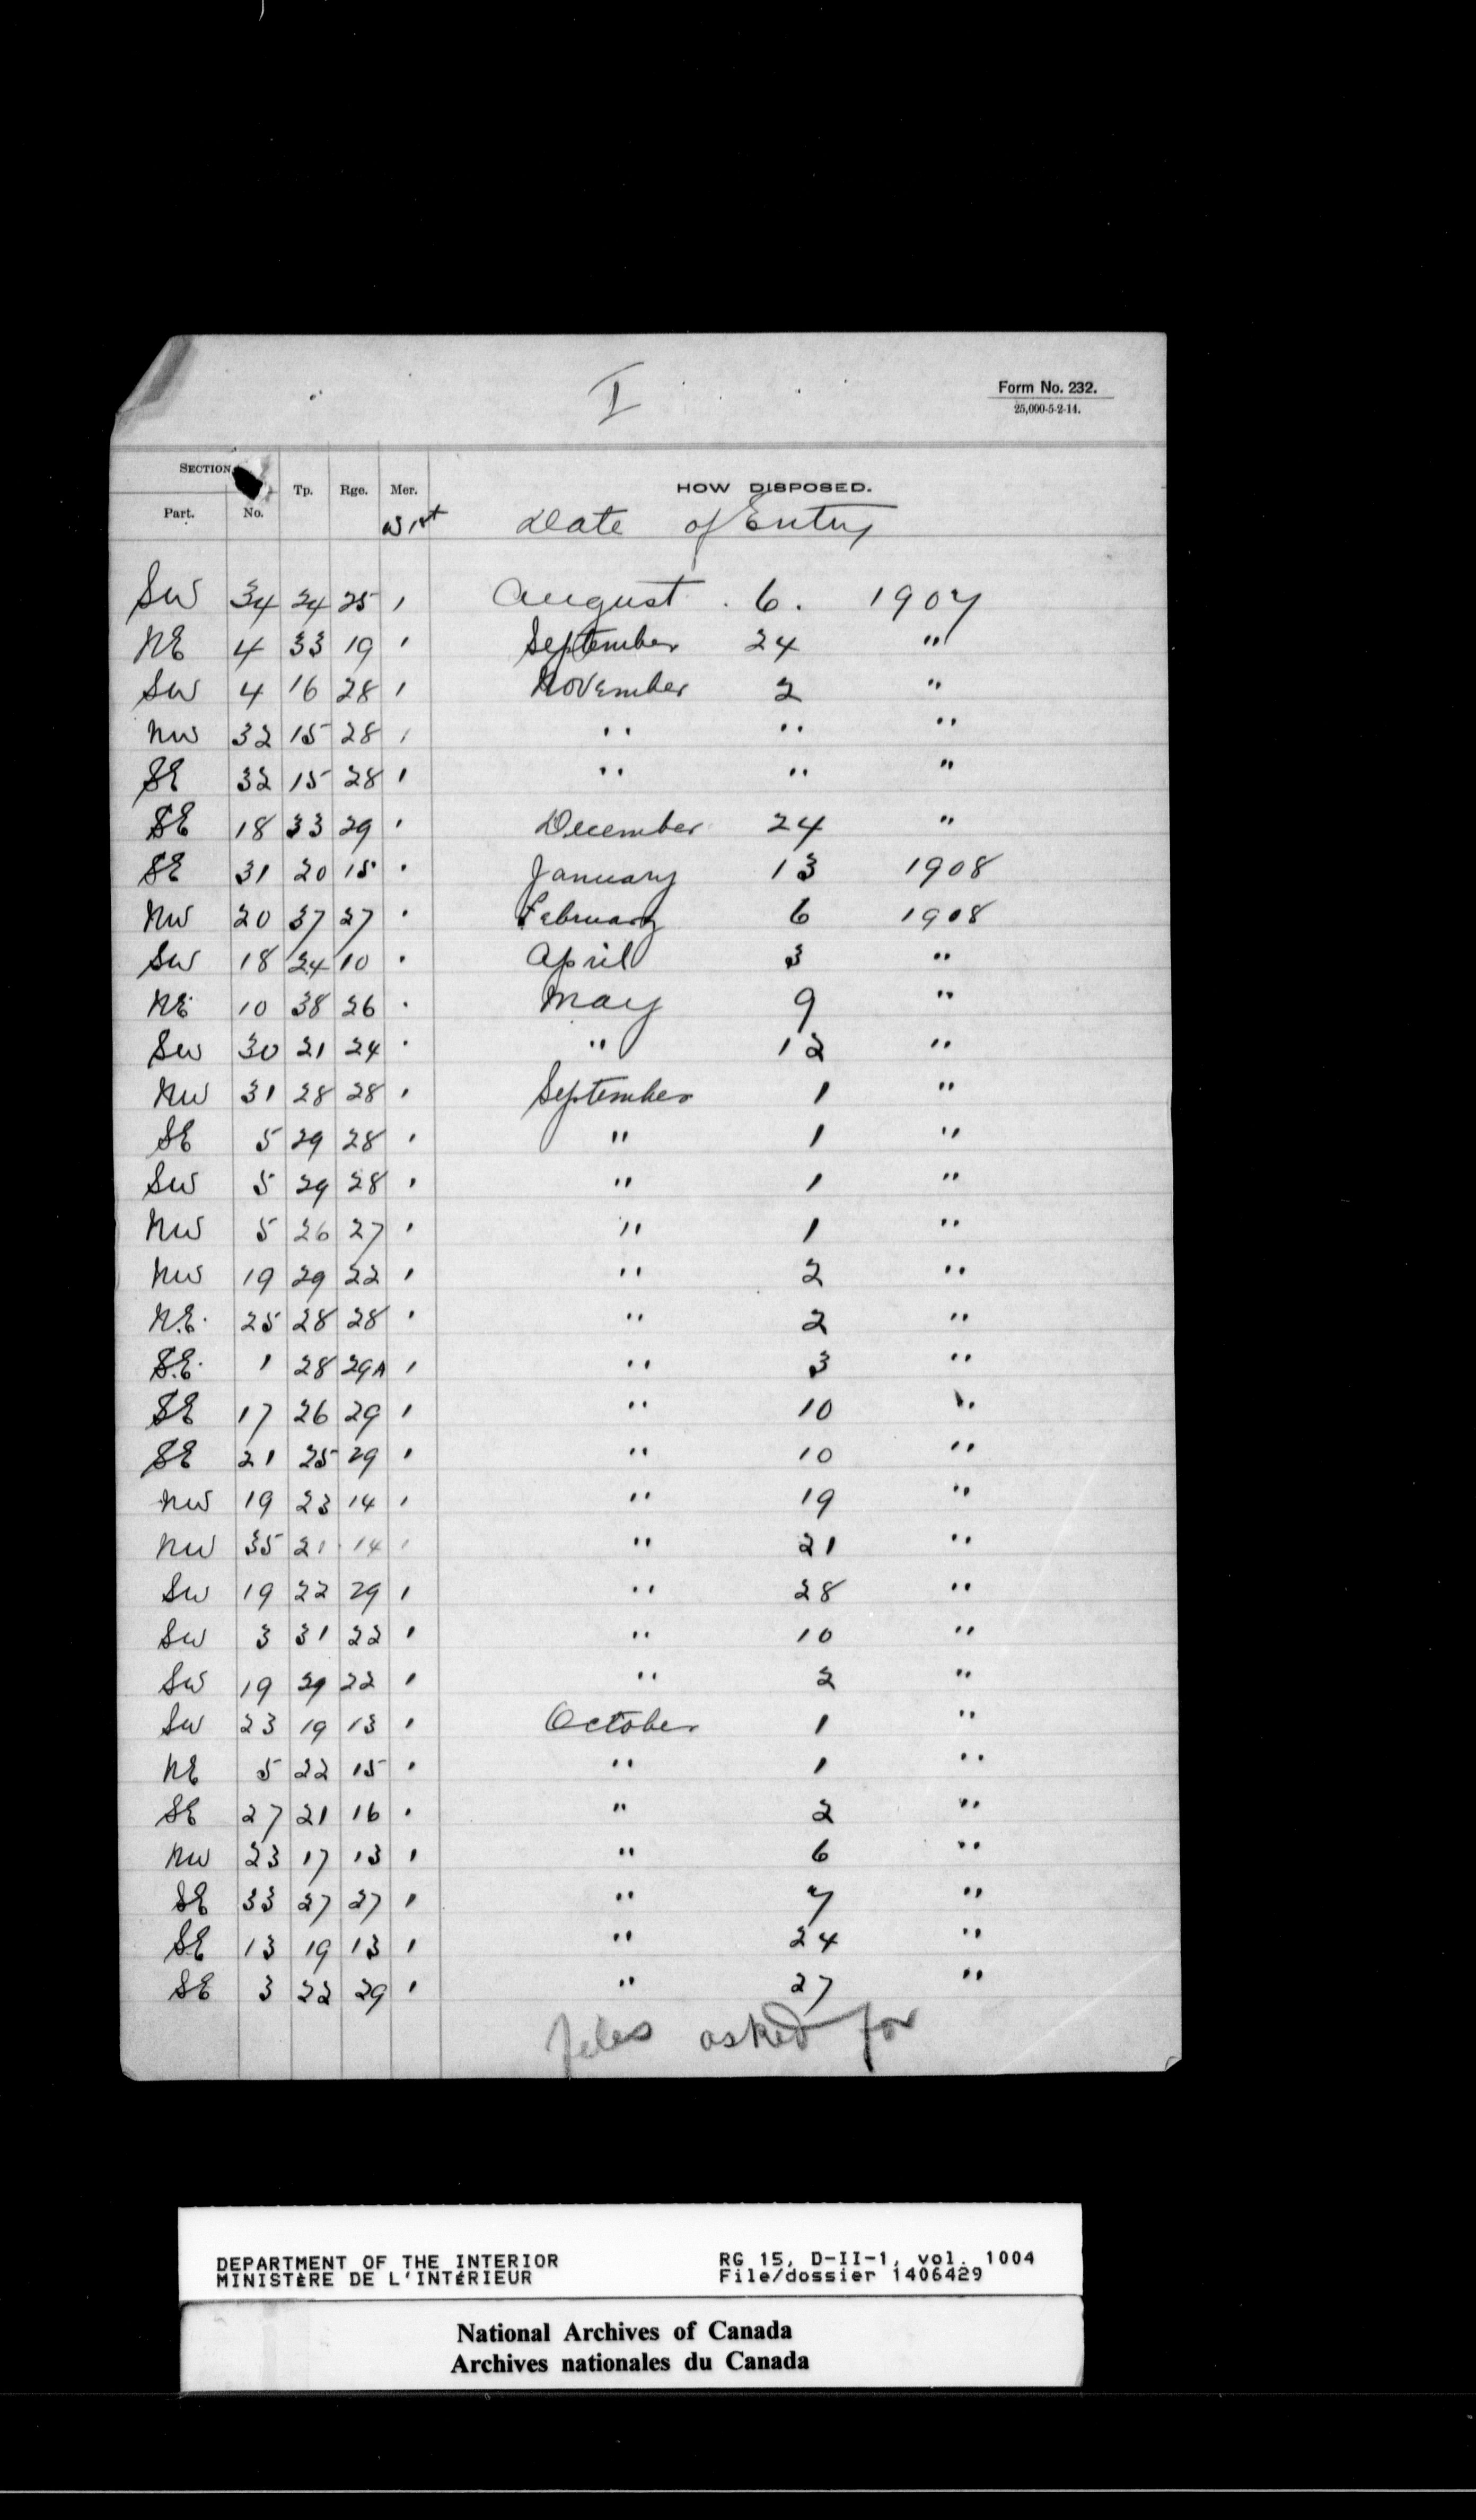 I
Form No. 232.
25,000-5-2-14.
SECTION
Part. No. Tp. Rge. Mer. HOW DISPOSED.
W 1st Date of Entry
SW 34 24 25 ' August . 6 . 1907
NE 4 33 19 ' September 24 "
SW 4 16 28 ' November 2 "
NW 32 15 28 ' " " "
SE 32 15 28 ' " " "
SE 18 33 29 ' December 24 "
SE 31 20 15 ' January 13 1908
NW 20 37 27 ' February 6 1908
SW 18 24 10 ' April 3 "
NE 10 38 26 ' May 9 "
SW 30 21 24 ' " 12 "
NW 31 28 28 ' September 1 "
SE 5 29 28 ' " 1 "
SW 5 29 28 ' " 1 "
NW 5 26 27 ' " 1 "
NW 19 29 22 ' " 2 "
N.E. 25 28 28 ' " 2 "
S.E. 1 28 29A ' " 3 "
SE 17 26 29 ' " 10 "
SE 21 25 29 ' " 10 "
NW 19 23 14 ' " 19 "
NW 35 21 14 ' " 21 "
SW 19 22 29 ' " 28 "
SW 3 31 22 ' " 10 "
SW 19 29 22 ' " 2 "
SW 23 19 13 ' October 1 "
NE 5 22 15 ' " 1 "
SE 27 21 16 ' " 2 "
NW 23 17 13 ' " 6 "
SE 33 27 27 ' " 7 "
SE 13 19 13 ' " 24 "
SE 3 22 29 ' " 27 "
files asked for
DEPARTMENT OF THE INTERIOR RG 15, D-II-1, vol. 1004
MINISTÈRE DE L'INTÉRIEUR File/dossier 1406429
National Archives of Canada
Archives nationales du Canada